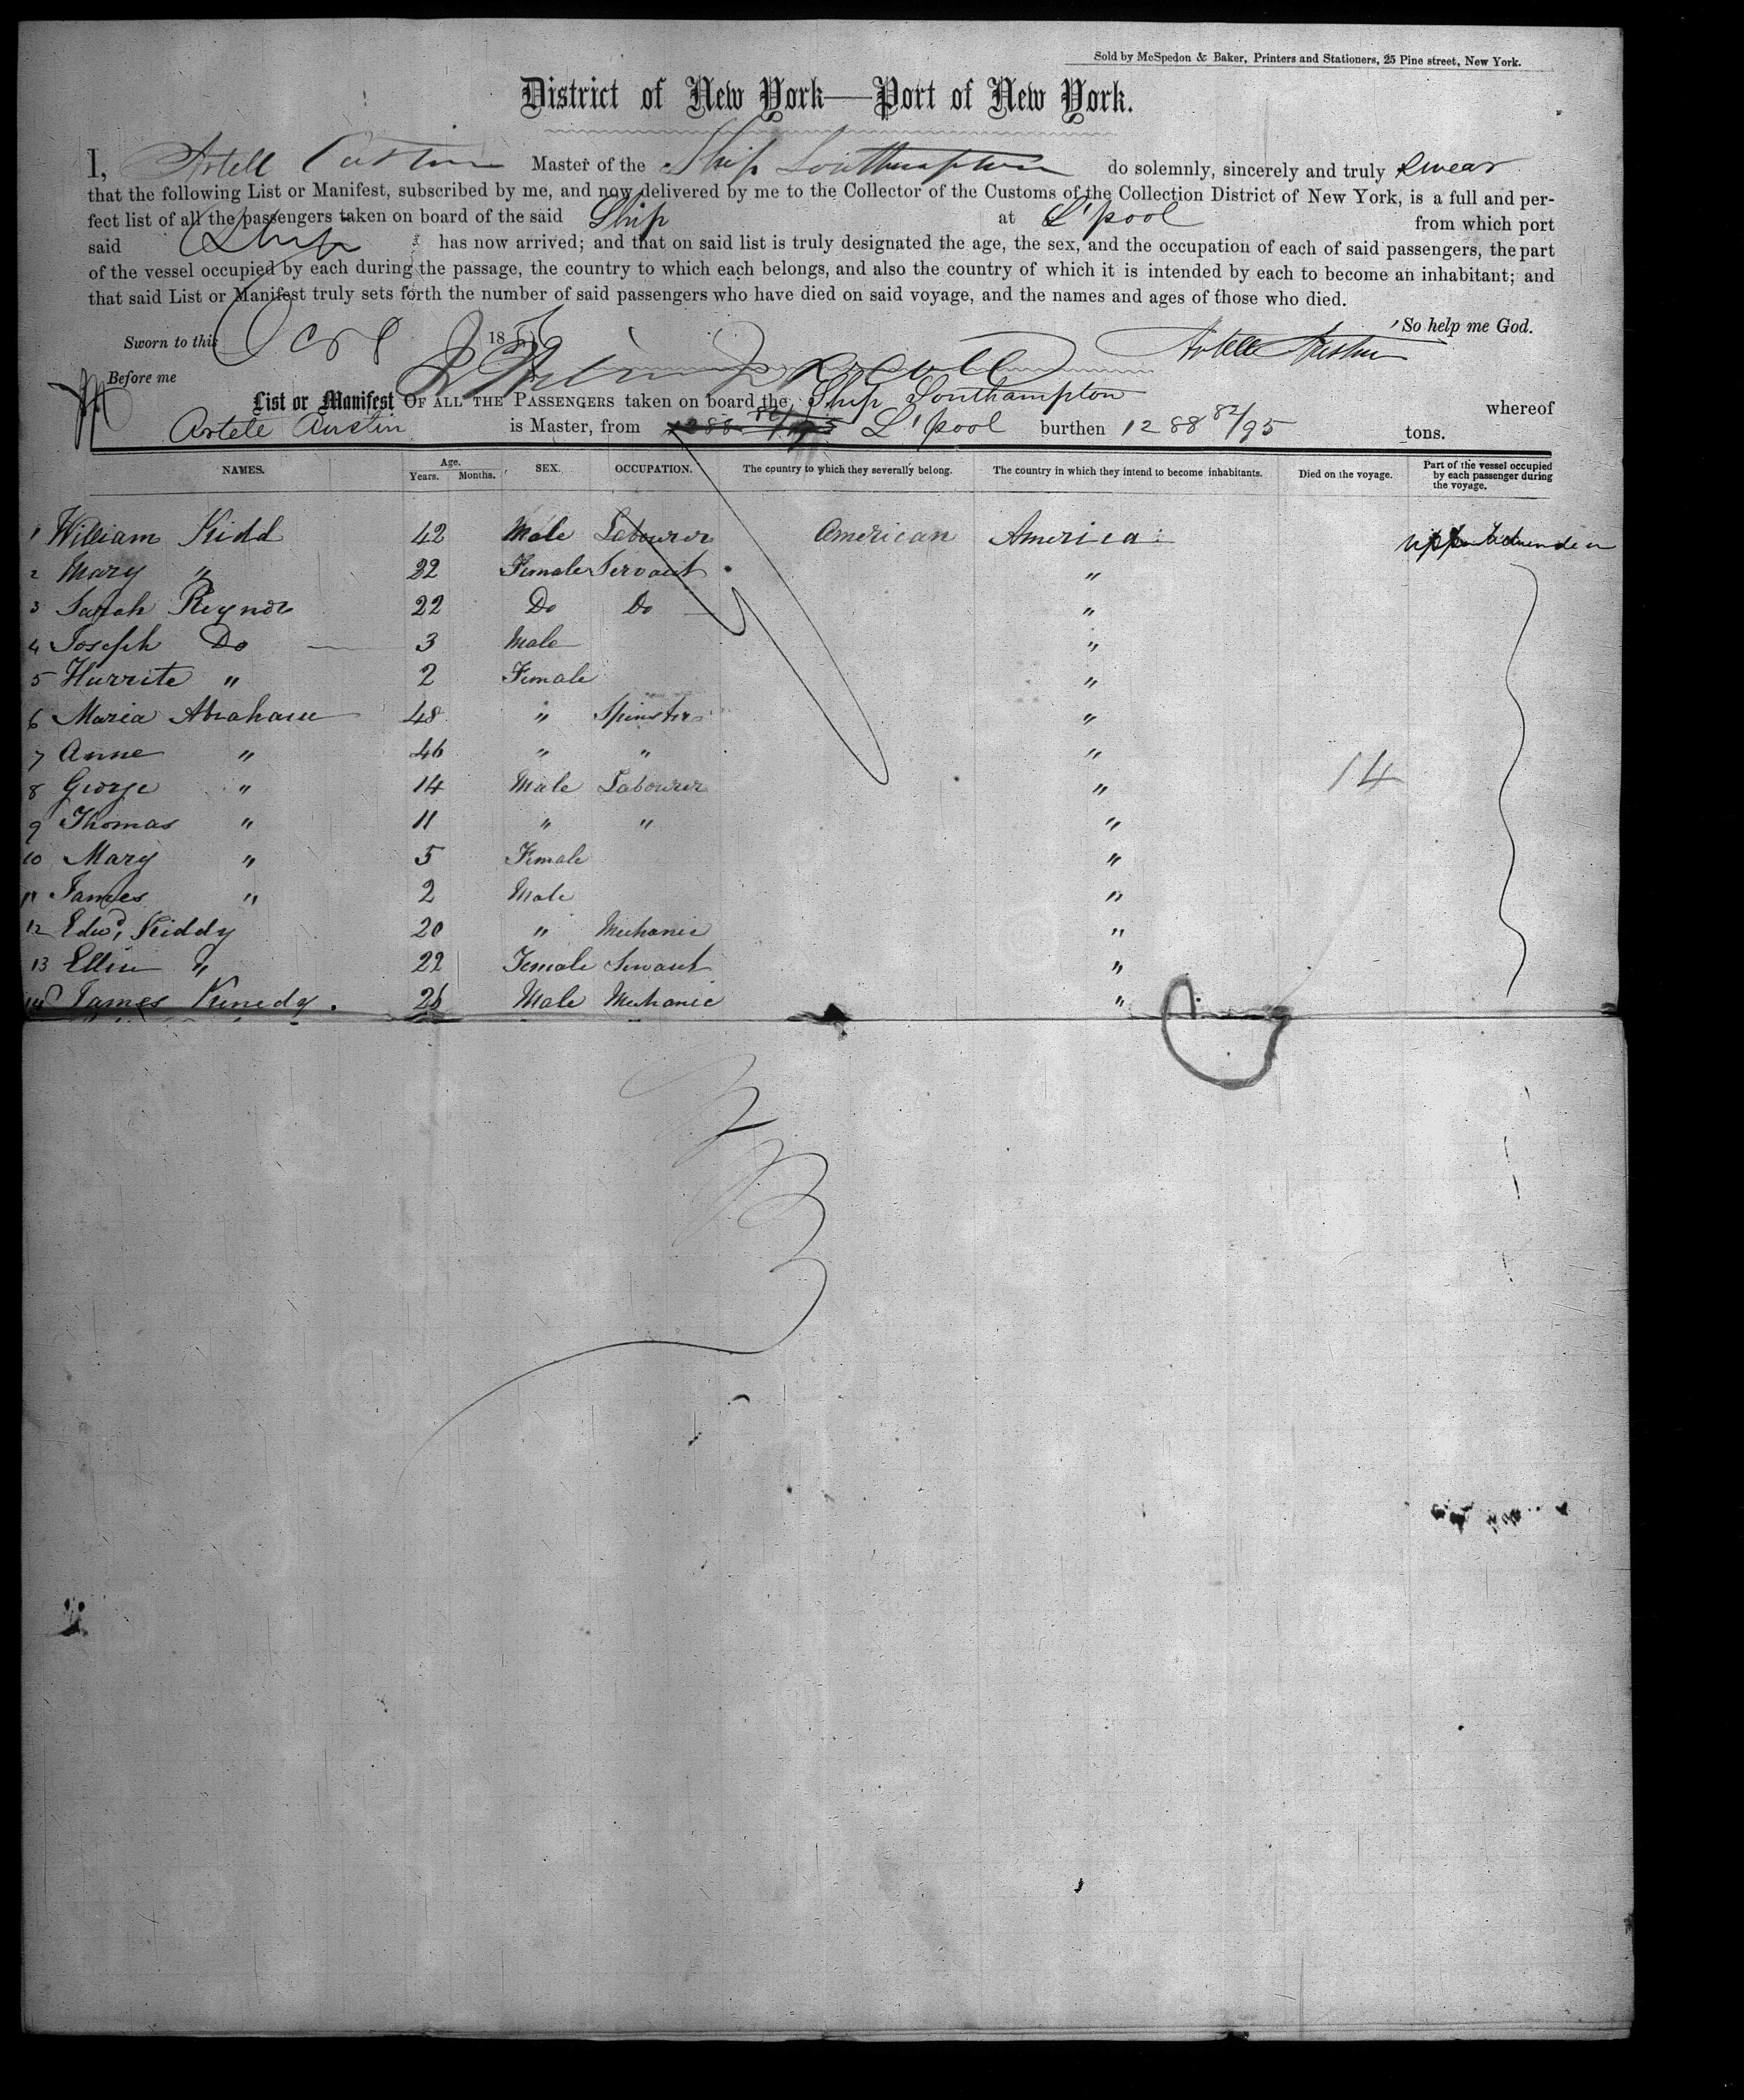 Sold by McSpedon & Baker, Printers and Stationers, 25 Pine street, New York.
District of New York—Port of New York.
I, Astell Austin Master of the Ship Southampton do solemnly, sincerely and truly swear
that the following List or Manifest, subscribed by me, and now delivered by me to the Collector of the Customs of the Collection District of New York, is a full and per-
fect list of all the passengers taken on board of the said Ship at L'pool from which port
said Ship has now arrived; and that on said list is truly designated the age, the sex, and the occupation of each of said passengers, the part
of the vessel occupied by each during the passage, the country to which each belongs, and also the country of which it is intended by each to become an inhabitant; and
that said List or Manifest truly sets forth the number of said passengers who have died on said voyage, and the names and ages of those who died.
So help me God.
Sworn to this Oct 8 18
Before me
List or Manifest OF ALL THE PASSENGERS taken on board the Ship Southampton whereof
Astele Austin is Master, from L'pool burthen 1288 82/95 tons.
NAMES. Age. Years. Months. SEX. OCCUPATION. The country to which they severally belong. The country in which they intend to become inhabitants. Died on the voyage. Part of the vessel occupied by each passenger during the voyage.
1 William Kidd 42 Male Labourer American America upper
2 Mary " 22 Female Servant "
3 Sarah Reynor 22 Do Do "
4 Joseph Do 3 Male "
5 Hurrite " 2 Female "
6 Maria Abraham 48 " Spinster "
7 Anne " 46 " " "
8 George " 14 Male Labourer " 14
9 Thomas " 11 " " "
10 Mary " 5 Female "
11 James " 2 Male "
12 Edwd. Kiddy 20 " Mechanic "
13 Ellin " 22 Female Servant "
14 James Kenedy. 26 Male Mechanic "